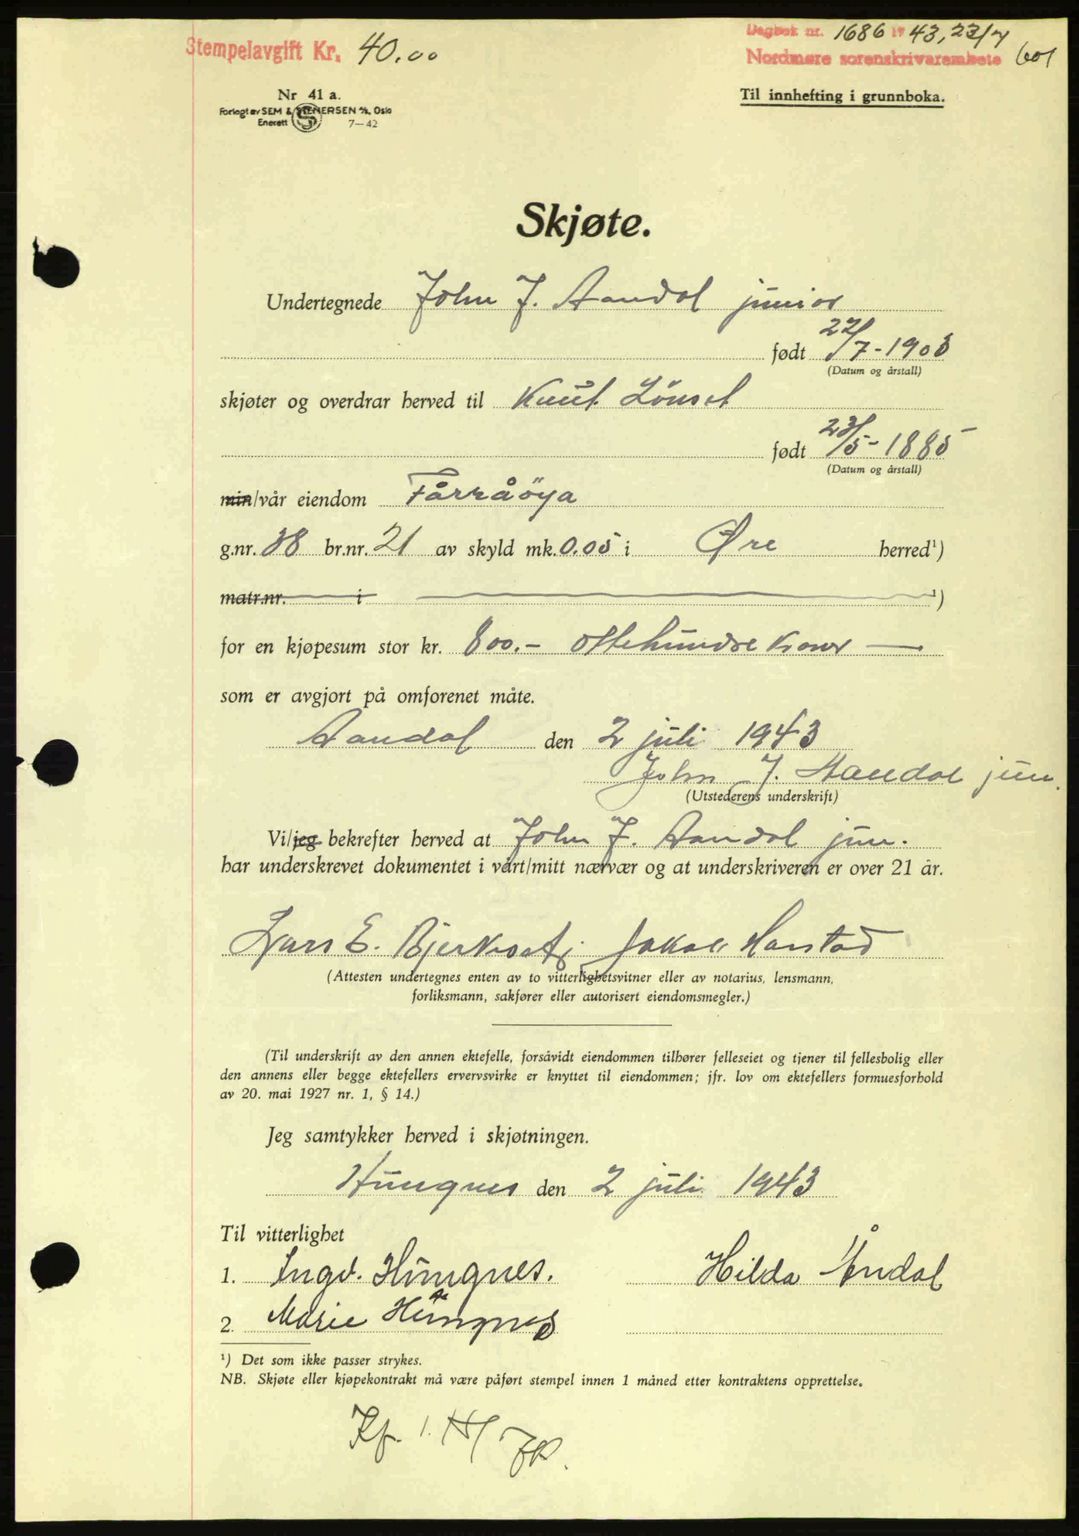 Stempelavgift Kr. 40.00
Dagbok nr. 1686 19 43, 23/7
Nordmøre sorenskriverembete 601
Nr 41 a.
Forlagt av SEM & STENERSEN A/S, Oslo
Enerett 7-42
Til innhefting i grunnboka.
Skjøte.
Undertegnede John J. Aandal junior
født 22/7-1903
(Datum og årstall)
skjøter og overdrar herved til Knut Lönset
født 23/5-1885
(Datum og årstall)
min/vår eiendom Fårråöya
g.nr. 38 br.nr. 21 av skyld mk. 0.05 i Øre herred¹)
matr.nr. i ¹)
for en kjøpesum stor kr. 800.- ottehundre kroner
som er avgjort på omforenet måte.
Aandal den 2 juli 1943
John J. Aandal jun.
(Utstederens underskrift)
Vi/jeg bekrefter herved at John J. Aandal jun.
har underskrevet dokumentet i vårt/mitt nærvær og at underskriveren er over 21 år.
Lars E. Jakob Harstad
(Attesten undertegnes enten av to vitterlighetsvitner eller av notarius, lensmann,
forliksmann, sakfører eller autorisert eiendomsmegler.)
(Til underskrift av den annen ektefelle, forsåvidt eiendommen tilhører felleseiet og tjener til fellesbolig eller
den annens eller begge ektefellers ervervsvirke er knyttet til eiendommen; jfr. lov om ektefellers formuesforhold
av 20. mai 1927 nr. 1, § 14.)
Jeg samtykker herved i skjøtningen.
Hungnes den 2 juli 1943
Til vitterlighet
1. Ingv. Hungnes. Hilda Åndal
2. Marie Hungnes
¹) Det som ikke passer strykes.
NB. Skjøte eller kjøpekontrakt må være påført stempel innen 1 måned etter kontraktens opprettelse.
Kf.